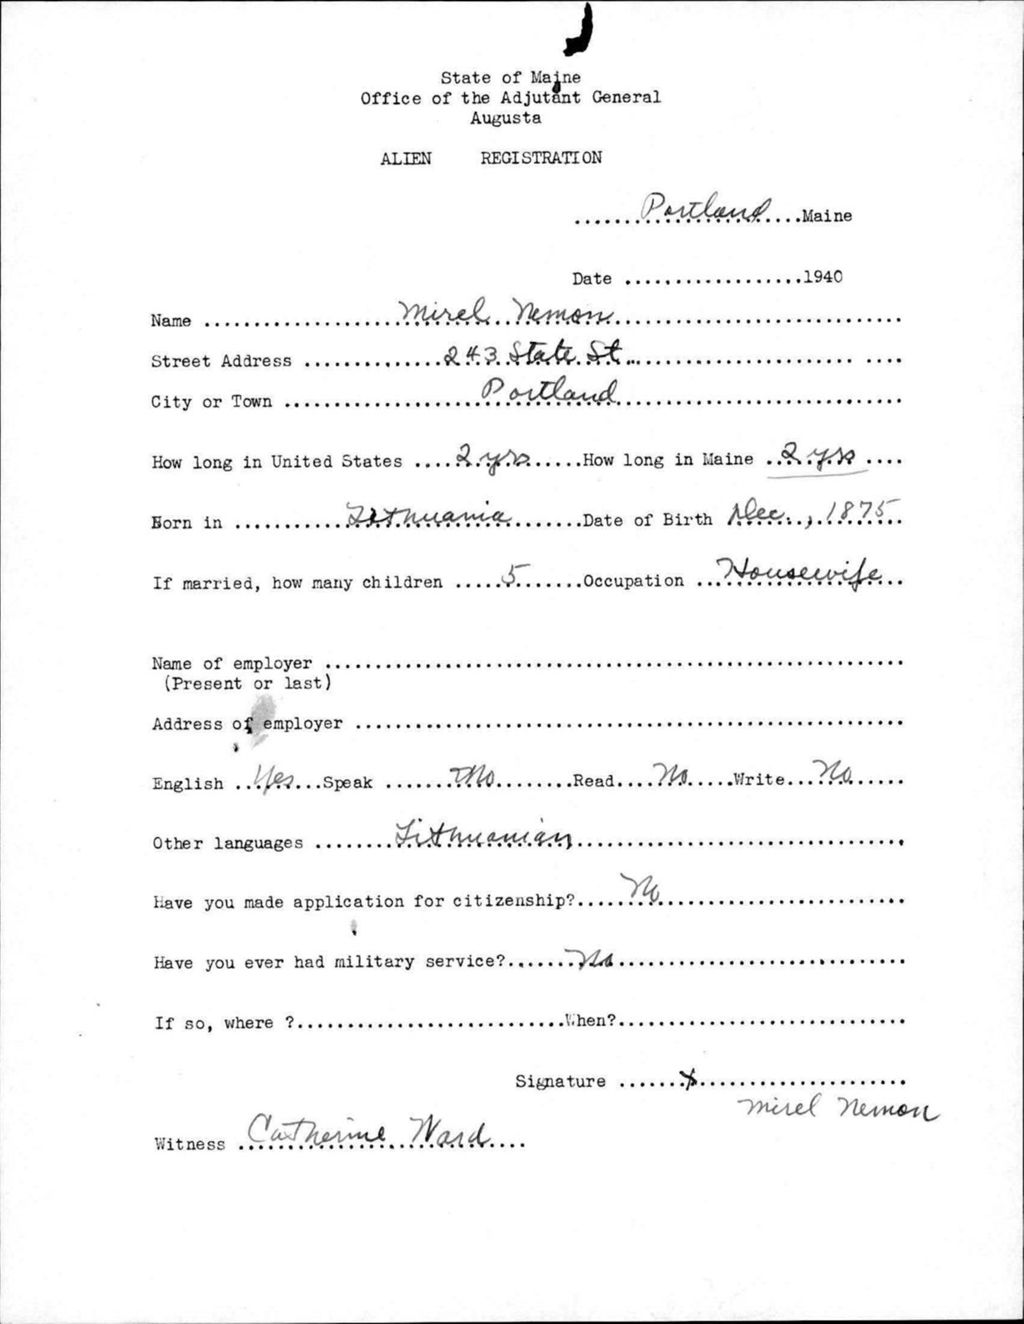 State of Maine
Office of the Adjutant General
Augusta
ALIEN REGISTRATION
.......Portland....Maine
Date ..................1940
Name ....................Mirel Nemon..............................
Street Address ..............243 State St............................ ....
City or Town ...................Portland.............................
How long in United States ....2 yrs......How long in Maine ..2 yrs....
Born in ...........Lithuania.......Date of Birth Dec., 1875
If married, how many children .....5.......Occupation ...Housewife..
Name of employer ..........................................................
(Present or last)
Address of employer .......................................................
English ..Yes...Speak .......No........Read....No.....Write...No.....
Other languages ........Lithuanian.................................
Have you made application for citizenship?......No.........................
Have you ever had military service?.......No.............................
If so, where ?...........................When?.............................
Signature .......x.....................
Mirel Nemon
Witness ..Catherine Ward....